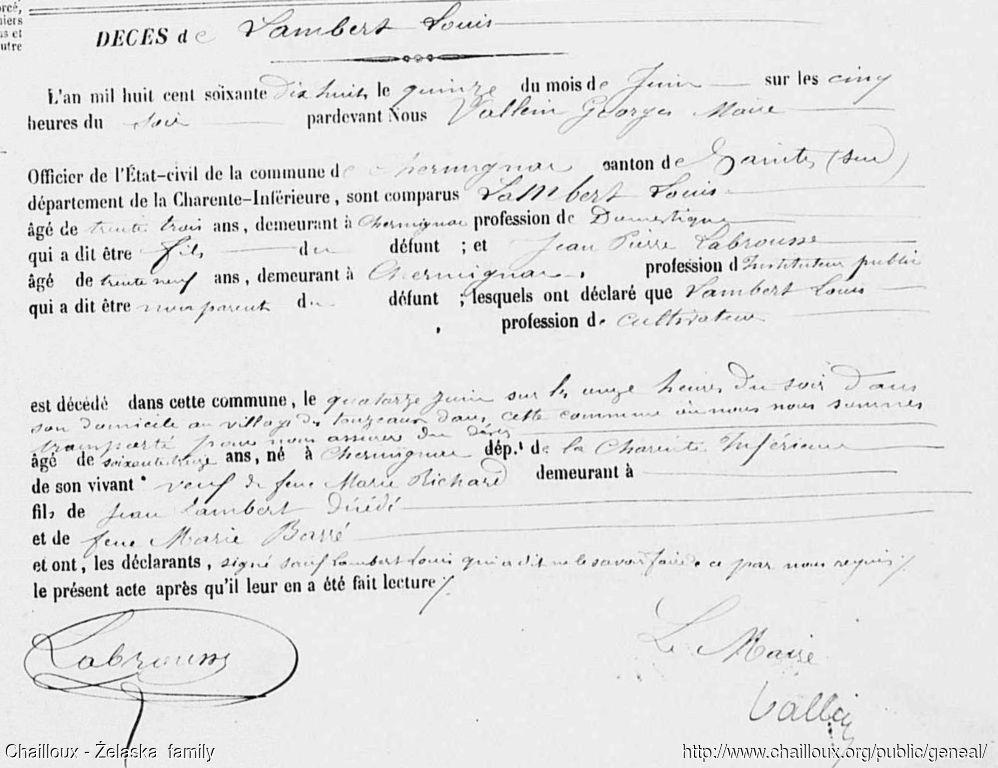 orcé,
niers
us et
utre
DECES de Lambert Louis
L'an mil huit cent soixante dix huit, le quinze du mois de Juin sur les cinq
heures du soir pardevant Nous Vallein Georges Maire
Officier de l'État-civil de la commune de Chermignac canton de Saintes (sud)
département de la Charente-Inférieure, sont comparus Lambert Louis
âgé de trente trois ans, demeurant à Chermignac profession de Domestique
qui a dit être fils du défunt ; et Jean Pierre Labrousse
âgé de trente neuf ans, demeurant à Chermignac, profession d'Instituteur public
qui a dit être non parent du défunt ; lesquels ont déclaré que Lambert Louis
, profession de cultivateur
est décédé dans cette commune, le quatorze juin sur les onze heures du soir dans
son domicile au village des touzeaux dans cette commune où nous nous sommes
transporté pour nous assurer du décès
âgé de soixante ans, né à Chermignac dép.t de la Charente Inférieure
de son vivant veuf de feue Marie Richard demeurant à
fils de Jean Lambert décédé
et de feue Marie Barré
et ont, les déclarants, signé sauf Lambert Louis qui a dit ne le savoir faire de ce par nous requis
le présent acte après qu'il leur en a été fait lecture
Labrousse
Le Maire
Vallein
Chailloux - Želaska family
http://www.chailloux.org/public/geneal/